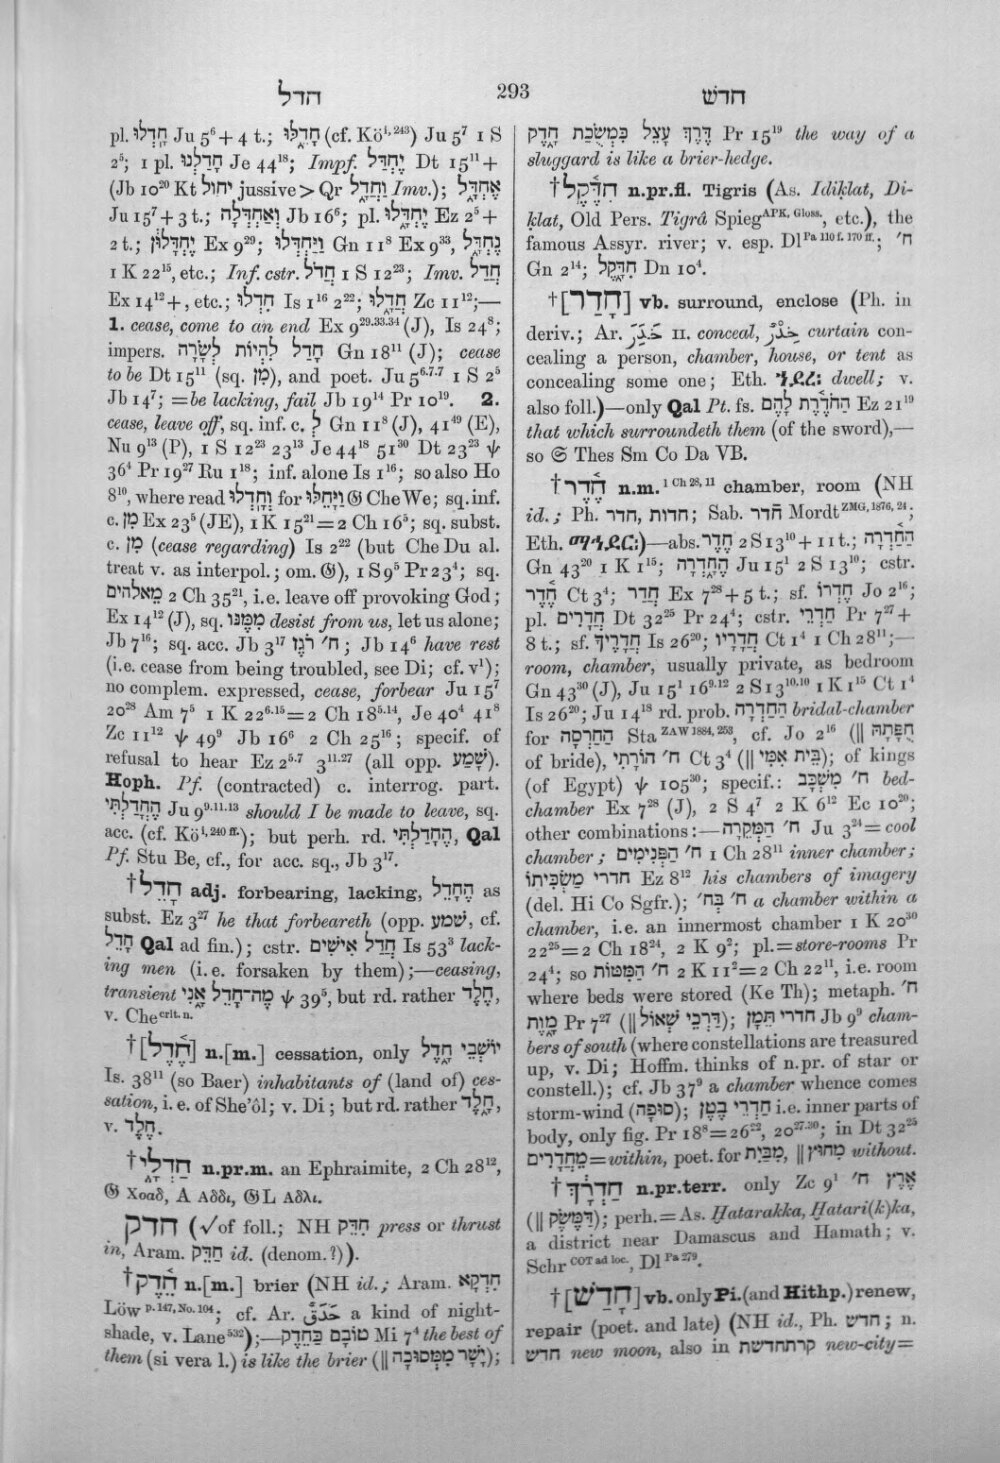 חדל
293
חדש
pl. חָֽדְלוּ Ju 5⁶ + 4 t.; חָדֵ֫לּוּ (cf. Kö^i, 243) Ju 5⁷ 1 S
2⁵; 1 pl. חָדַלְנוּ Je 44¹⁸; Impf. יֶחְדַּל Dt 15¹¹ +
(Jb 10²⁰ Kt יחדל jussive > Qr וַחֲדָל Imv.); אֶחְדָּֽל
Ju 15⁷ + 3 t.; וְאַחְדְּלָה Jb 16⁶; pl. יֶחְדְּלוּ Ez 2⁵ +
2 t.; יֶחְדָּלוּן Ex 9²⁹; וַיַּחְדְּלוּ Gn 11⁸ Ex 9³³, נֶחְדָּֽל
1 K 22¹⁵, etc.; Inf. cstr. חֲדֹל 1 S 12²³; Imv. חֲדַל
Ex 14¹² +, etc.; חִדְלוּ Is 1¹⁶ 2²²; חֲדָֽלוּ Zc 11¹²;—
1. cease, come to an end Ex 9²⁹·³³·³⁴ (J), Is 24⁸;
impers. חָדַל לִהְיוֹת לְשָׂרָה Gn 18¹¹ (J); cease
to be Dt 15¹¹ (sq. מִן), and poet. Ju 5⁶·⁷·⁷ 1 S 2⁵
Jb 14⁷; = be lacking, fail Jb 19¹⁴ Pr 10¹⁹. 2.
cease, leave off, sq. inf. c. לְ Gn 11⁸ (J), 41⁴⁹ (E),
Nu 9¹³ (P), 1 S 12²³ 23¹³ Je 44¹⁸ 51³⁰ Dt 23²³ ψ
36⁴ Pr 19²⁷ Ru 1¹⁸; inf. alone Is 1¹⁶; so also Ho
8¹⁰, where read וְחָֽדְלוּ for וַיָּחֵלּוּ 𝔊 Che We; sq. inf.
c. מִן Ex 23⁵ (JE), 1 K 15²¹ = 2 Ch 16⁵; sq. subst.
c. מִן (cease regarding) Is 2²² (but Che Du al.
treat v. as interpol.; om. 𝔊), 1 S 9⁵ Pr 23⁴; sq.
מֵאלהים 2 Ch 35²¹, i.e. leave off provoking God;
Ex 14¹² (J), sq. מִמֶּנּוּ desist from us, let us alone;
Jb 7¹⁶; sq. acc. Jb 3¹⁷ ח׳ רֹגֶז; Jb 14⁶ have rest
(i.e. cease from being troubled, see Di; cf. v¹);
no complem. expressed, cease, forbear Ju 15⁷
20²⁸ Am 7⁵ 1 K 22⁶·¹⁵ = 2 Ch 18⁵·¹⁴, Je 40⁴ 41⁸
Zc 11¹² ψ 49⁹ Jb 16⁶ 2 Ch 25¹⁶; specif. of
refusal to hear Ez 2⁵·⁷ 3¹¹·²⁷ (all opp. שָׁמַע).
Hoph. Pf. (contracted) c. interrog. part.
הֶחֳדַלְתִּי Ju 9⁹·¹¹·¹³ should I be made to leave, sq.
acc. (cf. Kö^i, 240 ff.); but perh. rd. הֶחָדַלְתִּי, Qal
Pf. Stu Be, cf., for acc. sq., Jb 3¹⁷.
†חָדֵל adj. forbearing, lacking, הֶחָדֵל as
subst. Ez 3²⁷ he that forbeareth (opp. שׁמע, cf.
חָדַל Qal ad fin.); cstr. חֲדַל אִישִׁים Is 53³ lack-
ing men (i.e. forsaken by them);—ceasing,
transient מֶה־חָדֵל אָנִי ψ 39⁵, but rd. rather חֶלֶד,
v. Che^crit. n.
†[חֶ֫דֶל] n.[m.] cessation, only יוֹשְׁבֵי חָדֶל
Is. 38¹¹ (so Baer) inhabitants of (land of) ces-
sation, i.e. of She'ôl; v. Di; but rd. rather חָלֶד,
v. חֶלֶד.
†חַדְלַי n.pr.m. an Ephraimite, 2 Ch 28¹²,
𝔊 Χοαδ, A Αδδι, 𝔊L Αδλι.
חדק (√ of foll.; NH חִדֵּק press or thrust
in, Aram. חַדֵּק id. (denom.?)).
†חֵ֫דֶק n.[m.] brier (NH id.; Aram. חִדְקָא
Löw^p. 147, No. 104; cf. Ar. حَدَق a kind of night-
shade, v. Lane⁵³²);—טוֹבָם כְּחֵדֶק Mi 7⁴ the best of
them (si vera l.) is like the brier (‖ יָשָׁר מִמְּסוּכָה);
דֶּרֶךְ עָצֵל כִּמְשֻׂכַת חָדֶק Pr 15¹⁹ the way of a
sluggard is like a brier-hedge.
†חִדֶּ֫קֶל n.pr.fl. Tigris (As. Idiḳlat, Di-
ḳlat, Old Pers. Tigrâ Spieg^APK, Gloss., etc.), the
famous Assyr. river; v. esp. Dl^Pa 110 f. 170 ff.; ח׳
Gn 2¹⁴; חִדָּקֶל Dn 10⁴.
†[חָדַר] vb. surround, enclose (Ph. in
deriv.; Ar. خَدَّرَ II. conceal, خِدْرٌ curtain con-
cealing a person, chamber, house, or tent as
concealing some one; Eth. ኀደረ፡ dwell; v.
also foll.)—only Qal Pt. fs. הַחֹדֶרֶת לָהֶם Ez 21¹⁹
that which surroundeth them (of the sword),—
so 𝔊 Thes Sm Co Da VB.
†חֶ֫דֶר n.m.^1 Ch 28, 11 chamber, room (NH
id.; Ph. חדר, חדות; Sab. חדר Mordt^ZMG, 1876, 24;
Eth. ማኅደር፡)—abs. חֶדֶר 2 S 13¹⁰ + 11 t.; הַחַ֫דְרָה
Gn 43²⁰ 1 K 1¹⁵; הֶחָֽדְרָה Ju 15¹ 2 S 13¹⁰; cstr.
חֶ֫דֶר Ct 3⁴; חֲדַר Ex 7²⁸ + 5 t.; sf. חֶדְרוֹ Jo 2¹⁶;
pl. חֲדָרִים Dt 32²⁵ Pr 24⁴; cstr. חַדְרֵי Pr 7²⁷ +
8 t.; sf. חֲדָרֶיךָ Is 26²⁰; חֲדָרָיו Ct 1⁴ 1 Ch 28¹¹;—
room, chamber, usually private, as bedroom
Gn 43³⁰ (J), Ju 15¹ 16⁹·¹² 2 S 13¹⁰·¹⁰ 1 K 1¹⁵ Ct 1⁴
Is 26²⁰; Ju 14¹⁸ rd. prob. הַחַדְרָה bridal-chamber
for הַחַרְסָה Sta^ZAW 1884, 253, cf. Jo 2¹⁶ (‖ חֻפָּתָהּ
of bride), ח׳ הוֹרָתִי Ct 3⁴ (‖ בֵּית אִמִּי); of kings
(of Egypt) ψ 105³⁰; specif.: ח׳ מִשְׁכָּב bed-
chamber Ex 7²⁸ (J), 2 S 4⁷ 2 K 6¹² Ec 10²⁰;
other combinations:—ח׳ הַמְּקֵרָה Ju 3²⁴ = cool
chamber; ח׳ הַפְּנִימִים 1 Ch 28¹¹ inner chamber;
חדרי מַשְׂכִּיתוֹ Ez 8¹² his chambers of imagery
(del. Hi Co Sgfr.); ח׳ בְּח׳ a chamber within a
chamber, i.e. an innermost chamber 1 K 20³⁰
22²⁵ = 2 Ch 18²⁴, 2 K 9²; pl. = store-rooms Pr
24⁴; so ח׳ הַמִּטּוֹת 2 K 11² = 2 Ch 22¹¹, i.e. room
where beds were stored (Ke Th); metaph. ח׳
מָוֶת Pr 7²⁷ (‖ דַּרְכֵי שְׁאוֹל); חדרי תֵּמָן Jb 9⁹ cham-
bers of south (where constellations are treasured
up, v. Di; Hoffm. thinks of n.pr. of star or
constell.); cf. Jb 37⁹ a chamber whence comes
storm-wind (סוּפָה); חַדְרֵי בֶטֶן i.e. inner parts of
body, only fig. Pr 18⁸ = 26²², 20²⁷·³⁰; in Dt 32²⁵
מֵחֲדָרִים = within, poet. for מִבַּיִת, ‖ מִחוּץ without.
†חַדְרָךְ n.pr.terr. only Zc 9¹ אֶרֶץ ח׳
(‖ דַּמֶּשֶׂק); perh. = As. Ḫatarakka, Ḫatari(k)ka,
a district near Damascus and Hamath; v.
Schr^COT ad loc., Dl^Pa 279.
†[חָדַשׁ] vb. only Pi. (and Hithp.) renew,
repair (poet. and late) (NH id., Ph. חדש; n.
חדש new moon, also in קרתחדשת new-city =